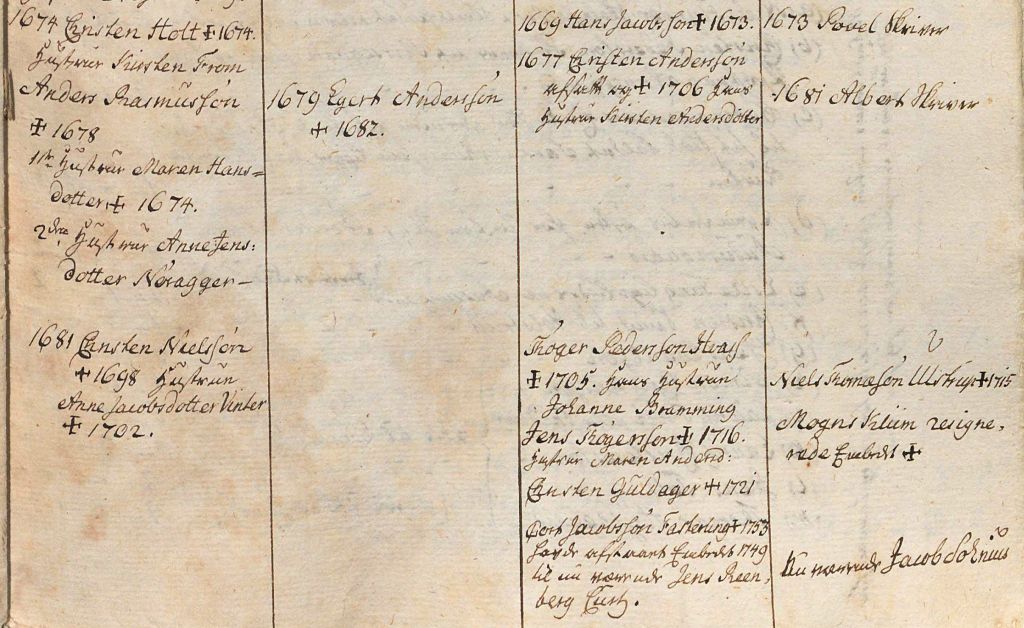 1674 Christen Holt ✝ 1674.
Hustrue Kirsten From
Anders Rasmussøn
✝ 1678
1te Hustrue Maren Hans=
dotter ✝ 1674.
2den Hustrue Anne Jens:
dotter Nøragger–
1681 Christen Nielssøn
✝ 1698 Hustrun
Anne Jacobsdotter Vinter
✝ 1702.
1679 Egert Anderssøn
✝ 1682.
1669 Hans Jacobsson ✝ 1673.
1677 Christen Andersson
afsatt og ✝ 1706 Hans
Hustrue Kirsten Andersdotter
Thøger Pederson Hvass
✝ 1705. Hans Hustrun
Johanne Bramming
Jens Thøgersson ✝ 1716.
Hustrue Maren Andersd:
Christen Guldager ✝ 1721
Jacobssøn Fasterling ✝ 1753
havde afstaaet Embedet 1749
til nu værende Jens Reen,
berg Curtz.
1673 Povel Skriver
1681 Albert Skriver
Niels Thomæsøn Ulstrup ✝ 1715
Mogns Klüm resigne,
rede Embedet ✝
Nu værende Jacob Solnius